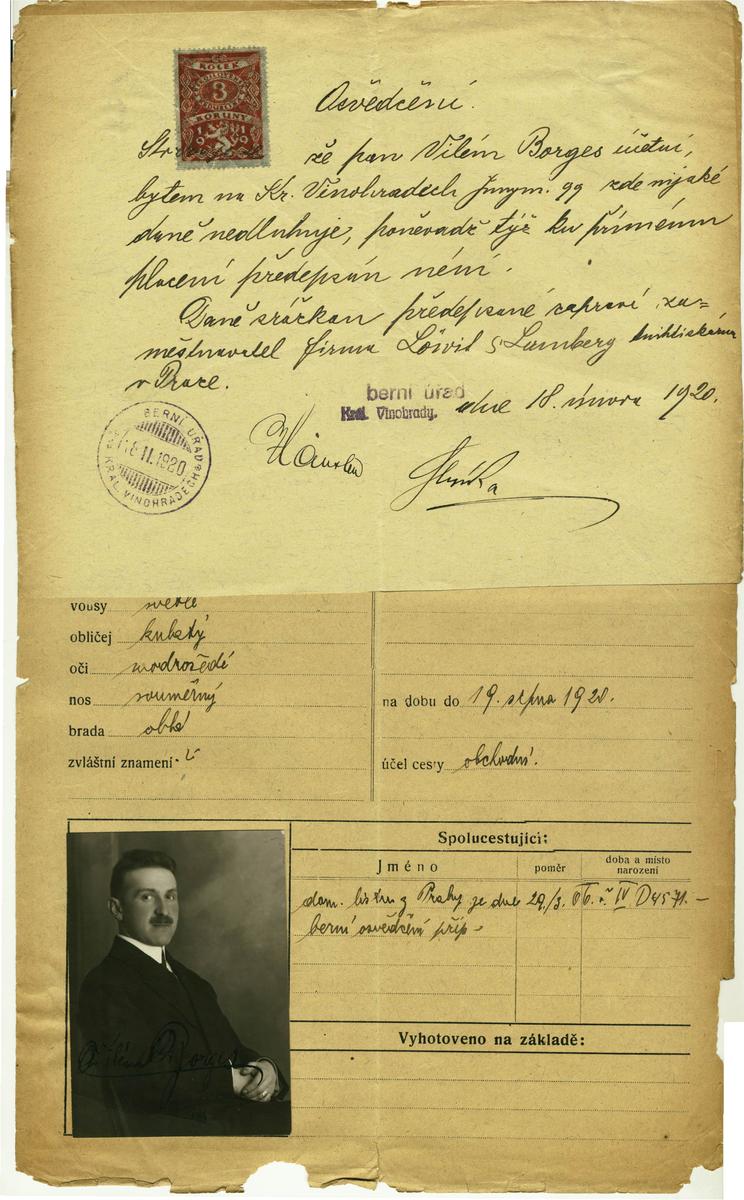 KOLEK
3
KORUNY
1919
Osvědčení.
že pan Vilém Borges účetní,
bytem na Kr. Vinohradech Jungm. 99 zde nijaké
daně nedluhuje, poněvadž týž ku přímému
placení předepsán není.
Daně srážkou předepsané zapraví za=
městnavatel firma Löwit & Lamberg knihtiskárna
v Praze.
berní úřad
Král. Vinohrady.
dne 18. února 1920.
BERNÍ ÚŘAD
18 II. 1920
KRÁL. VINOHRADECH
vousy světlé
obličej kulatý
oči modrošedé
nos souměrný
brada oblá
zvláštní znamení
na dobu do 19. srpna 1920.
účel cesty obchodní.
Spolucestující:
Jméno
poměr
doba a místo narození
dom. listu z Prahy je dne 29./3. 06. č. IV D 4571.
berní osvědčení přip
Vyhotoveno na základě:
Vilém Borges